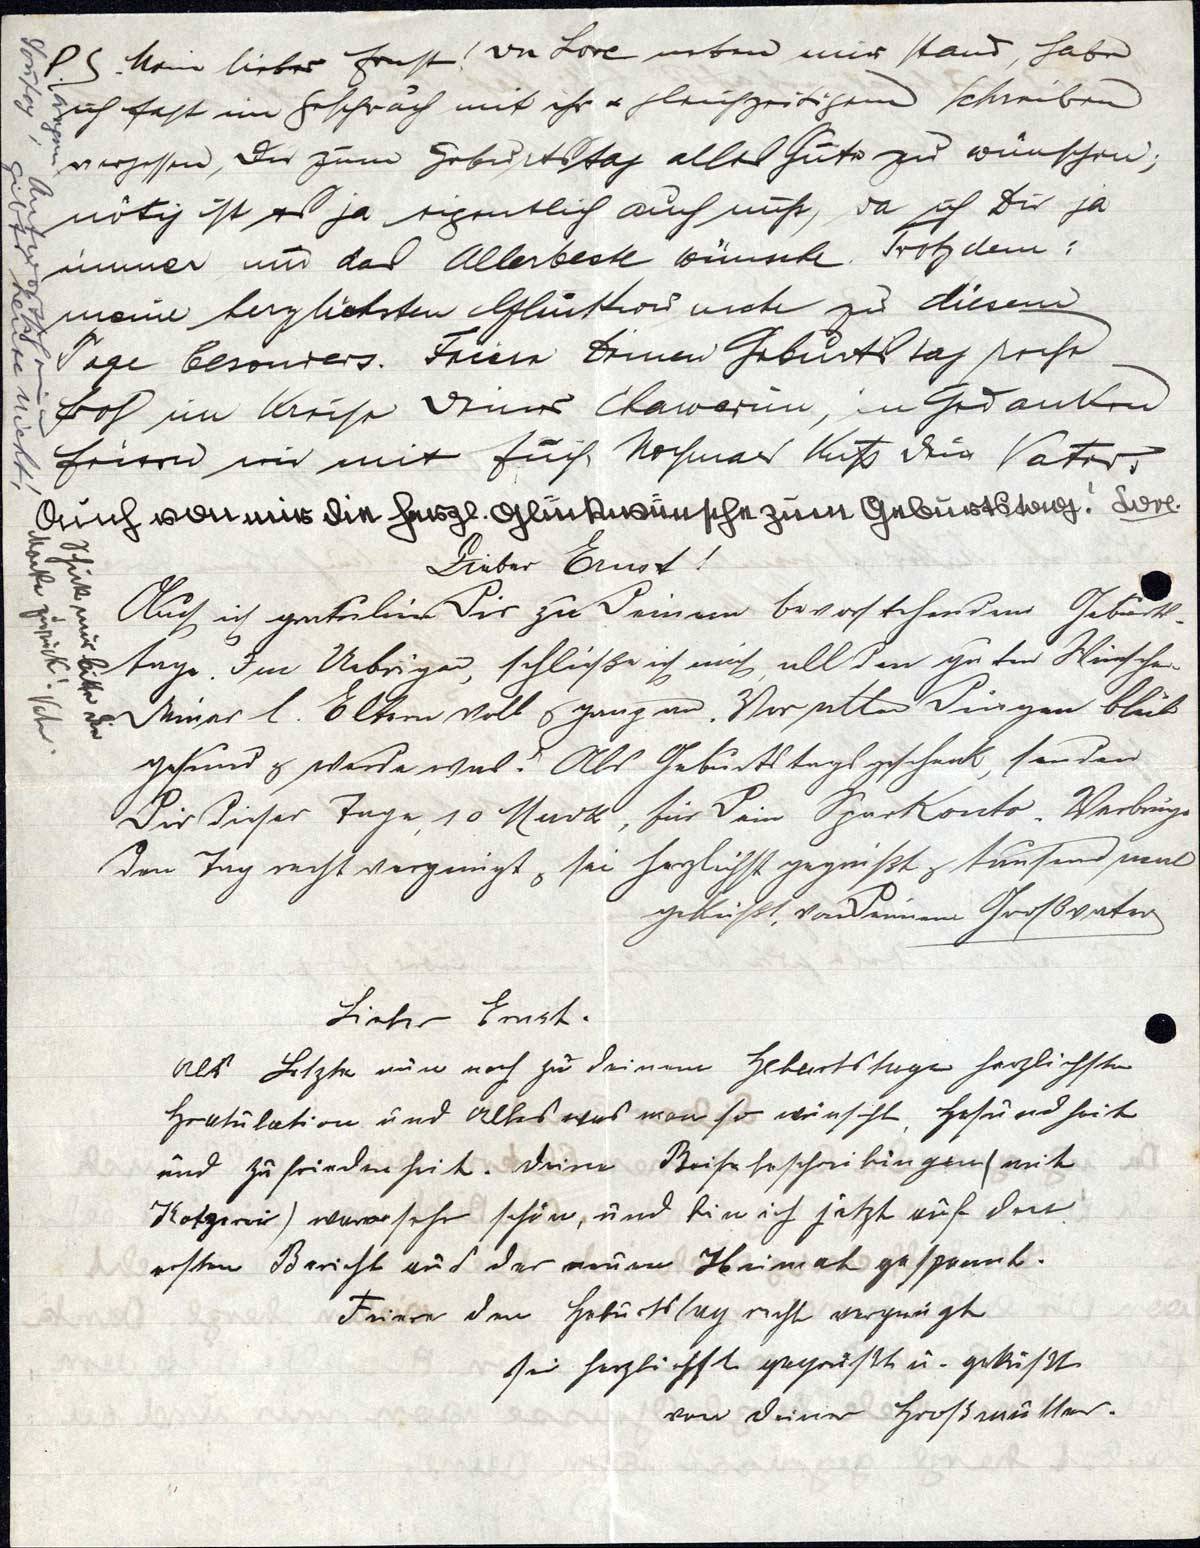 P.S. Mein lieber Ernst! Da Lore neben mir stand, habe
ich fast im Gespräch mit ihr & gleichzeitigem Schreiben
vergessen, Dir zum Geburtstag alles Gute zu wünschen;
nötig ist es ja eigentlich auch nicht, da ich Dir ja
immer nur das Allerbeste wünsche. Trotzdem:
meine herzlichsten Glückwünsche zu diesem
Tage besonders. Feiere Deinen Geburtstag recht
froh im Kreise Deiner Chawerim, in Gedanken
feiern wir mit Euch. Nochmals Kuß Dein Vater.
Auch von mir die herzl. Glückwünsche zum Geburtstag! Lore.
Lieber Ernst!
Auch ich gratuliere Dir zu Deinem bevorstehenden Geburts-
tage. Im Uebrigen, schließe ich mich all den guten Wünschen
Deiner l. Eltern voll & ganz an. Vor allen Dingen bleib
gesund & werde was! Als Geburtstagsgeschenk, senden
Dir dieser Tage, 10 Mark, für Dein Sparkonto. Verbringe
den Tag recht vergnügt & sei herzlichst gegrüßt & tausend mal
geküßt, von Deinem Großvater
Lieber Ernst.
Als Letzte nun noch zu deinem Geburtstage herzlichste
Gratulation und Alles was man so wünscht, Gesundheit
und Zufriedenheit. Deine Reisebeschreibungen (mit
) waren sehr schön, und bin ich jetzt auf den
ersten Bericht aus der neuen Heimat gespannt.
Feiere den Geburtstag recht vergnügt
sei herzlichst gegrüßt u. geküßt
von deiner Großmutter.
Antwortschein
gibt es heute nicht!
Schicke mir bitte die
Marke zurück! Vater